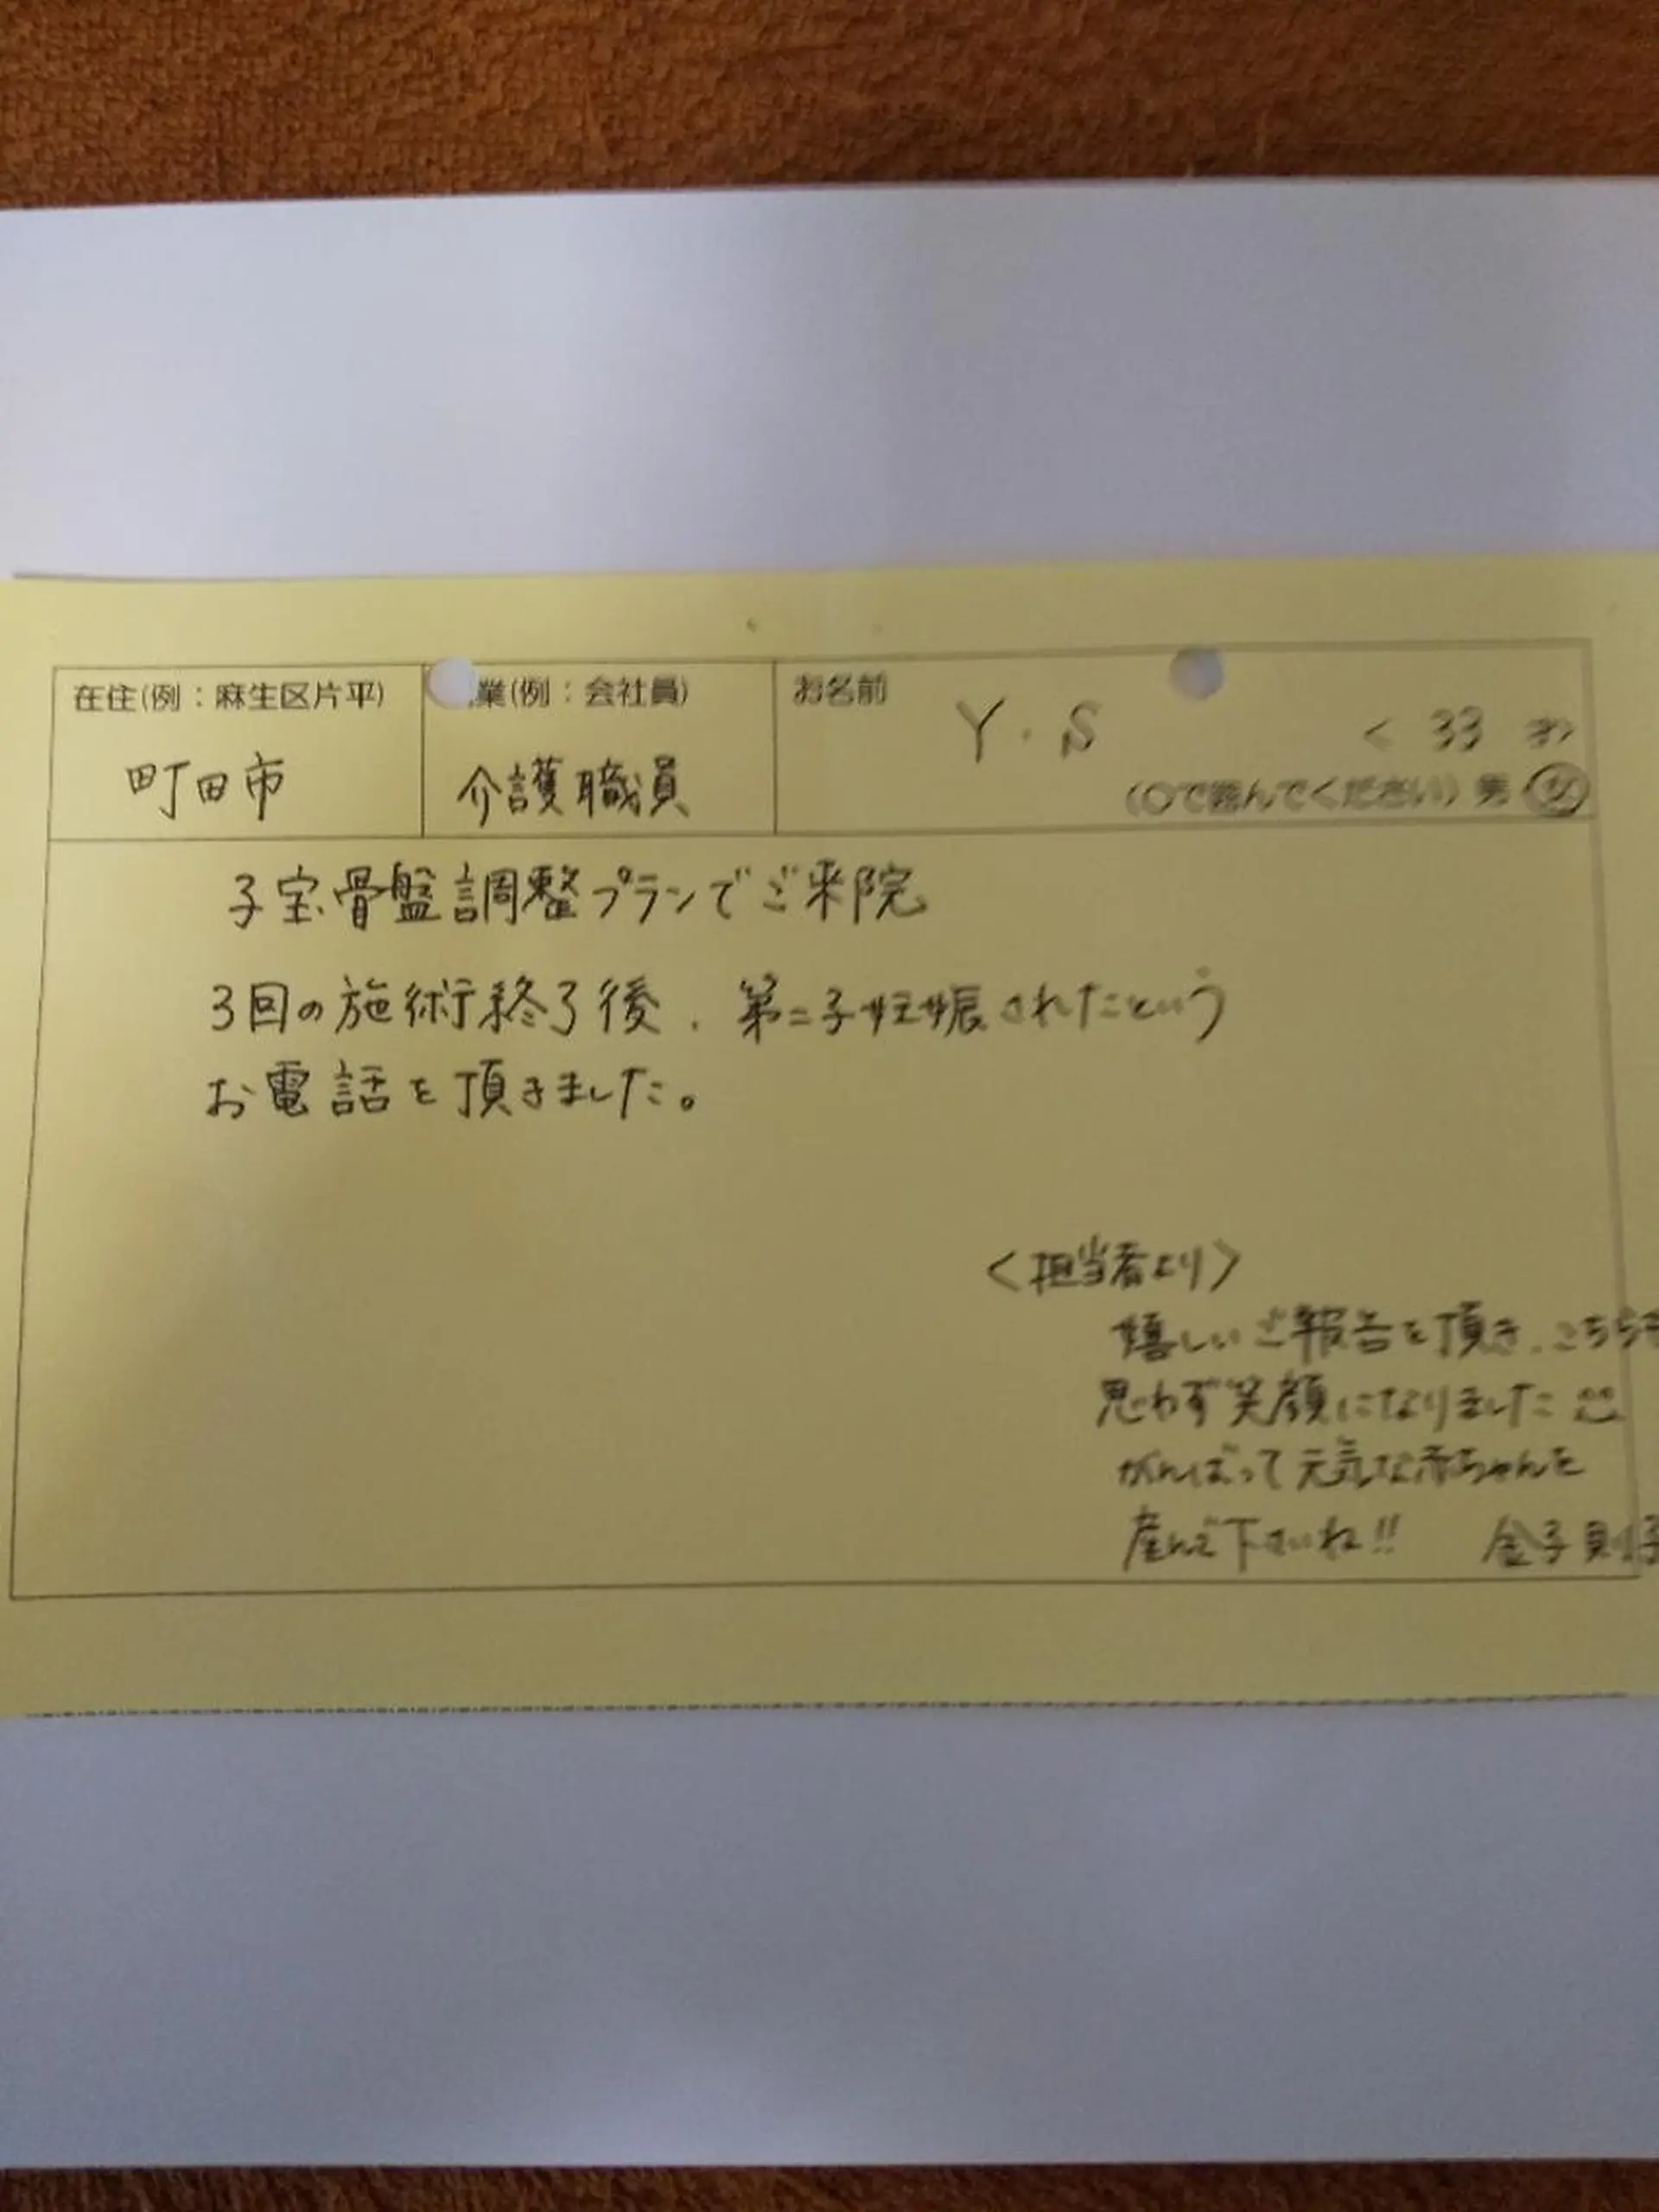 在住(例：麻生区片平)
業(例：会社員)
お名前
町田市
介護職員
Y・S
33
(○で囲んでください) 男 女
子宝骨盤調整プランでご来院
3回の施術終了後、第二子妊娠されたという
お電話を頂きました。
<担当者より>
嬉しいご報告を頂き、こちらも
思わず笑顔になりました
がんばって元気な赤ちゃんを
産んで下さいね!! 金子則子